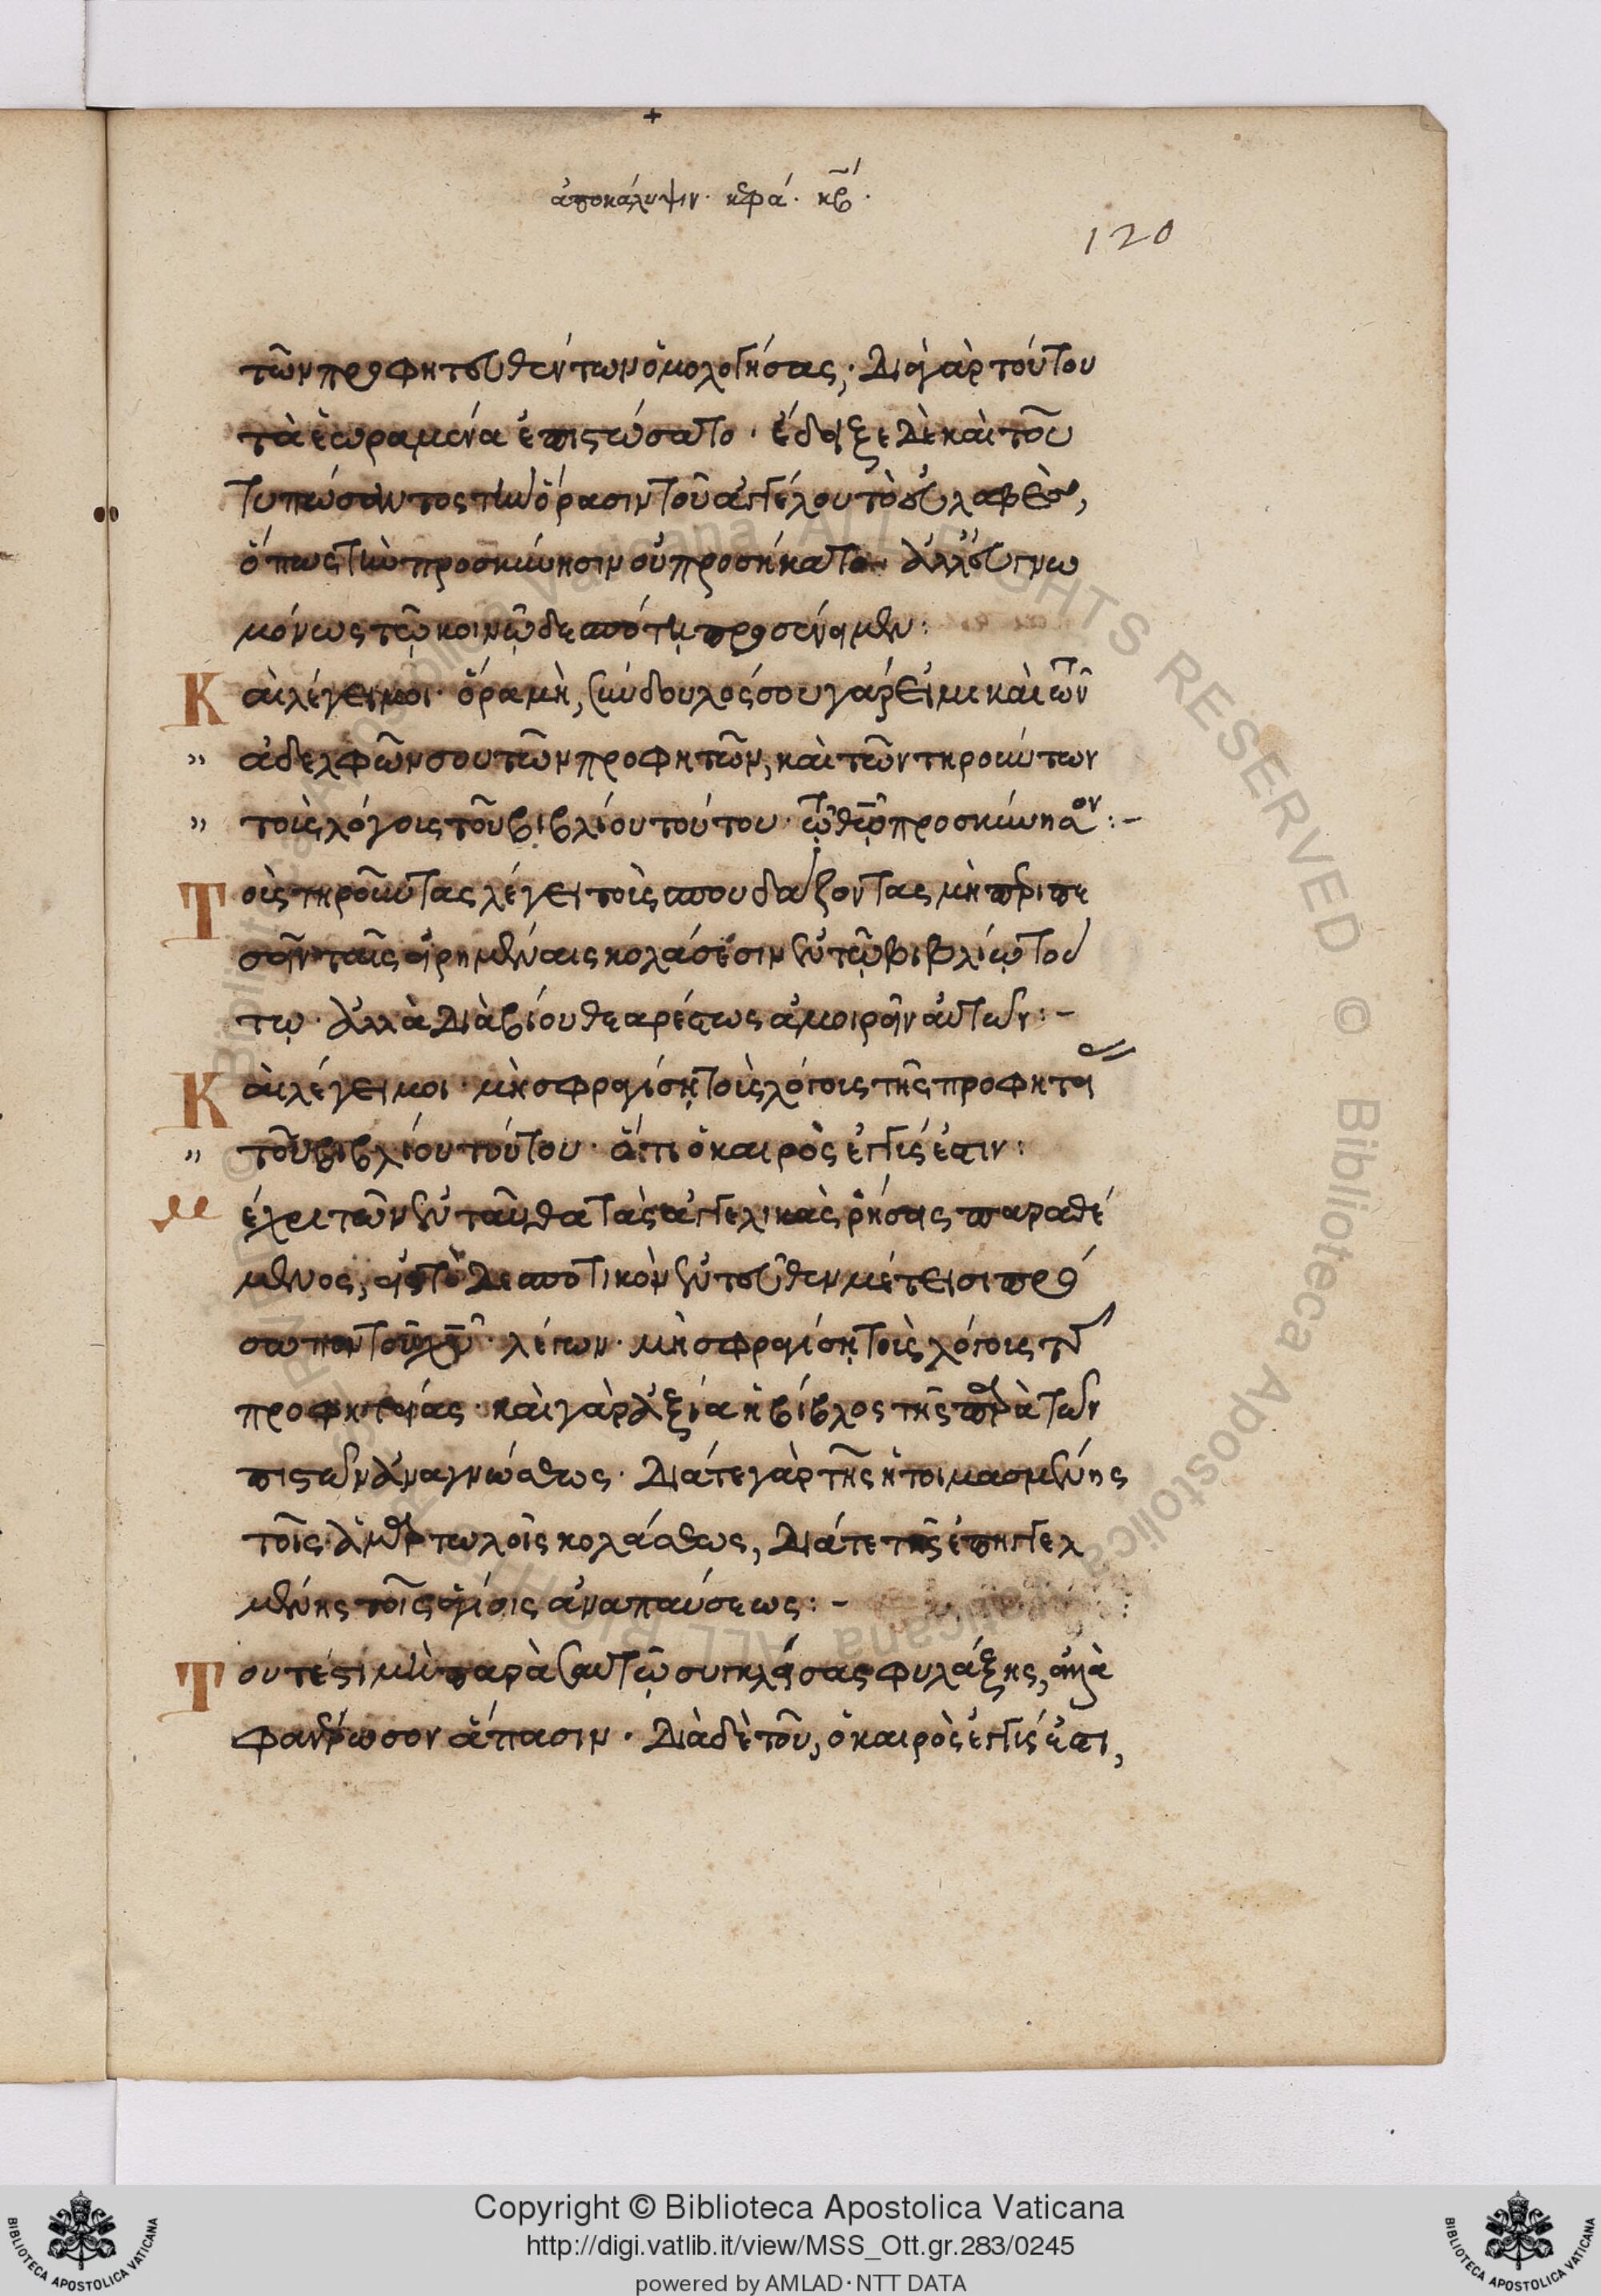 ἀποκάλυψιν. κεφά. κβ.
120
τῶν προφητευθέντων ὁμολογήσας· Διὰ γὰρ τούτου
τὰ ἑωραμένα ἐπιστώσατο. ἔδειξε δὲ καὶ τοῦ
τυπώσαντος τὴν ὅρασιν τοῦ ἀγγέλου τὸ εὐλαβὲς,
ὅπως τὴν προσκύνησιν οὐ προσήκατο. ἀλλ' εὐγνω
μόνως τῷ κοινῷ δεσπότῃ προσένειμεν:
Καὶ λέγει μοι. ὅρα μὴ, σύνδουλός σου γάρ εἰμι καὶ τῶν
ἀδελφῶν σου τῶν προφητῶν, καὶ τῶν τηρούντων
τοὺς λόγους τοῦ βιβλίου τούτου. τῷ θῷ προσκύνησον:-
Τοὺς τηροῦντας λέγει τοὺς σπουδάζοντας μὴ περιπε
σεῖν ταῖς εἰρημέναις κολάσεσιν ἐν τῷ βιβλίῳ τού
τῳ. ἀλλὰ Διὰ βίου θεαρέστως ἀμοιρεῖν αὐτῶν:-
Καὶ λέγει μοι. μὴ σφραγίσῃ τοὺς λόγους τῆς προφητεί
ας
τοῦ βιβλίου τούτου. ὅτι ὁ καιρὸς ἐγγύς ἐστιν:
Μέχρι τῶν ἐνταῦθα τὰς ἀγγελικὰς ῥήσεις παραθέ
μενος, εἰς τὸ Δεσποτικὸν ἐντεῦθεν μέτεισι πρό
σωπον τοῦ χυ. λέγων. μὴ σφραγίσῃ τοὺς λόγους τῆς
προφητείας. καὶ γὰρ ἀξία ἡ βίβλος τῆς παρὰ τῶν
πιστῶν ἀναγνώσεως. Διά τε γὰρ τῆς ἡτοιμασμένης
τοῖς ἁμαρτωλοῖς κολάσεως, Διά τε τῆς ἐπηγγελ
μένης τοῖς ἁγίοις ἀναπαύσεως:-
Τουτέστι μὴ παρὰ σαυτῷ συγκλείσας φυλάξῃς, ἀλλὰ
φανέρωσον ἅπασιν. Διὰ δὲ τοῦ, ὁ καιρὸς ἐγγύς ἐστι,
Copyright © Biblioteca Apostolica Vaticana
http://digi.vatlib.it/view/MSS_Ott.gr.283/0245
powered by AMLAD·NTT DATA